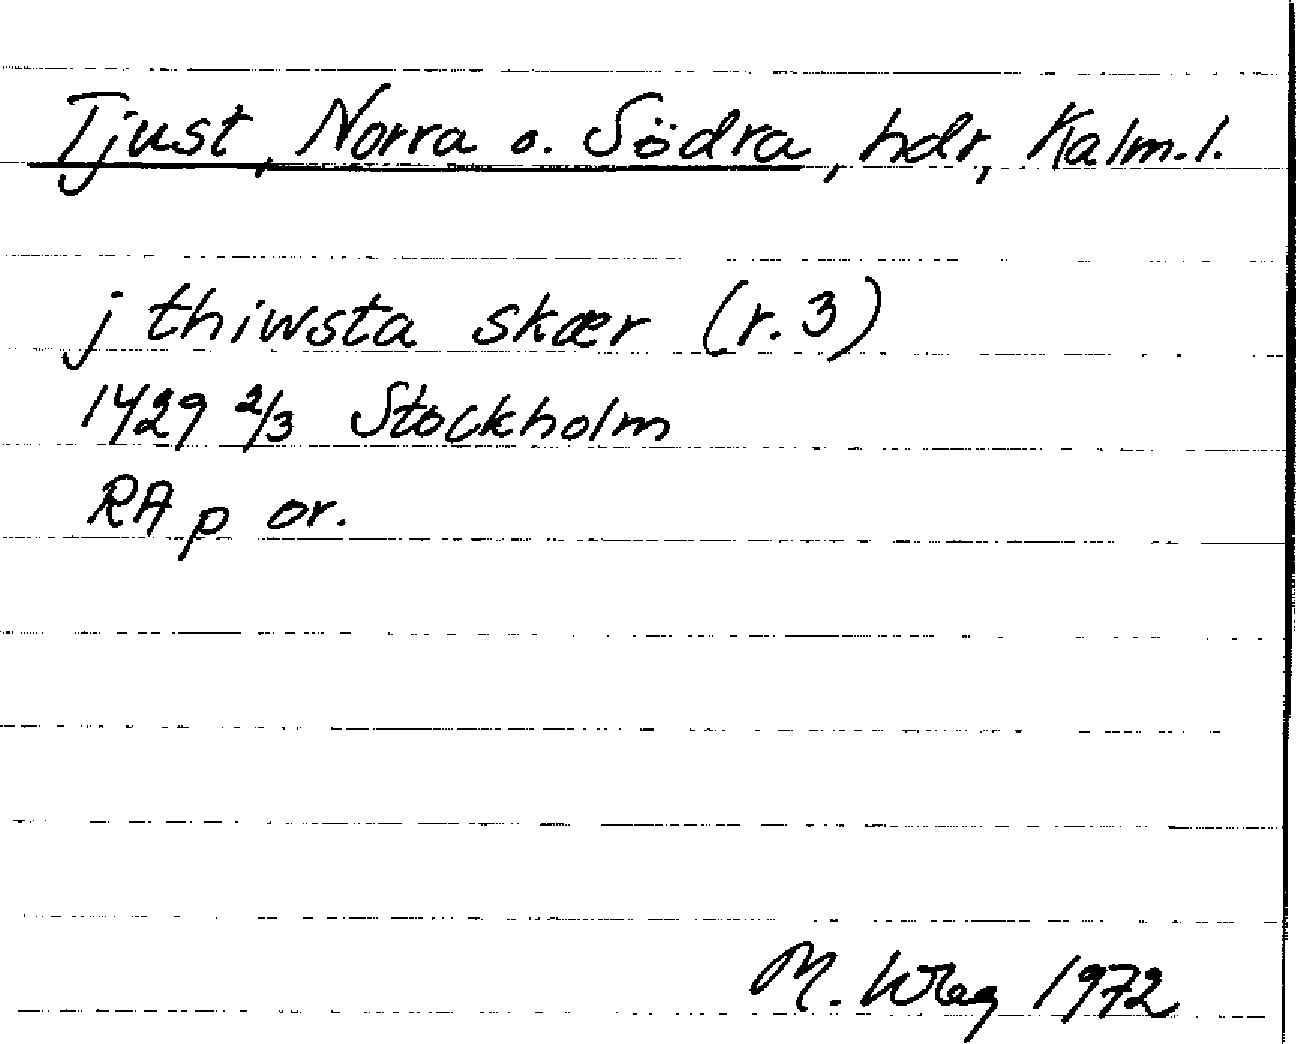 Tjust, Norra o. Södra, hdr, Kalm. l.
j thiwsta skær (r. 3)
1429 2/3 Stockholm
RA p or.
M. 1972